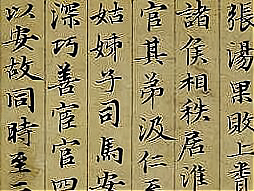 張湯果敗上
諸侯相秩居淮
官其弟汲仁至
姑姊子司馬安
深巧善宦官四
以安故同時至二